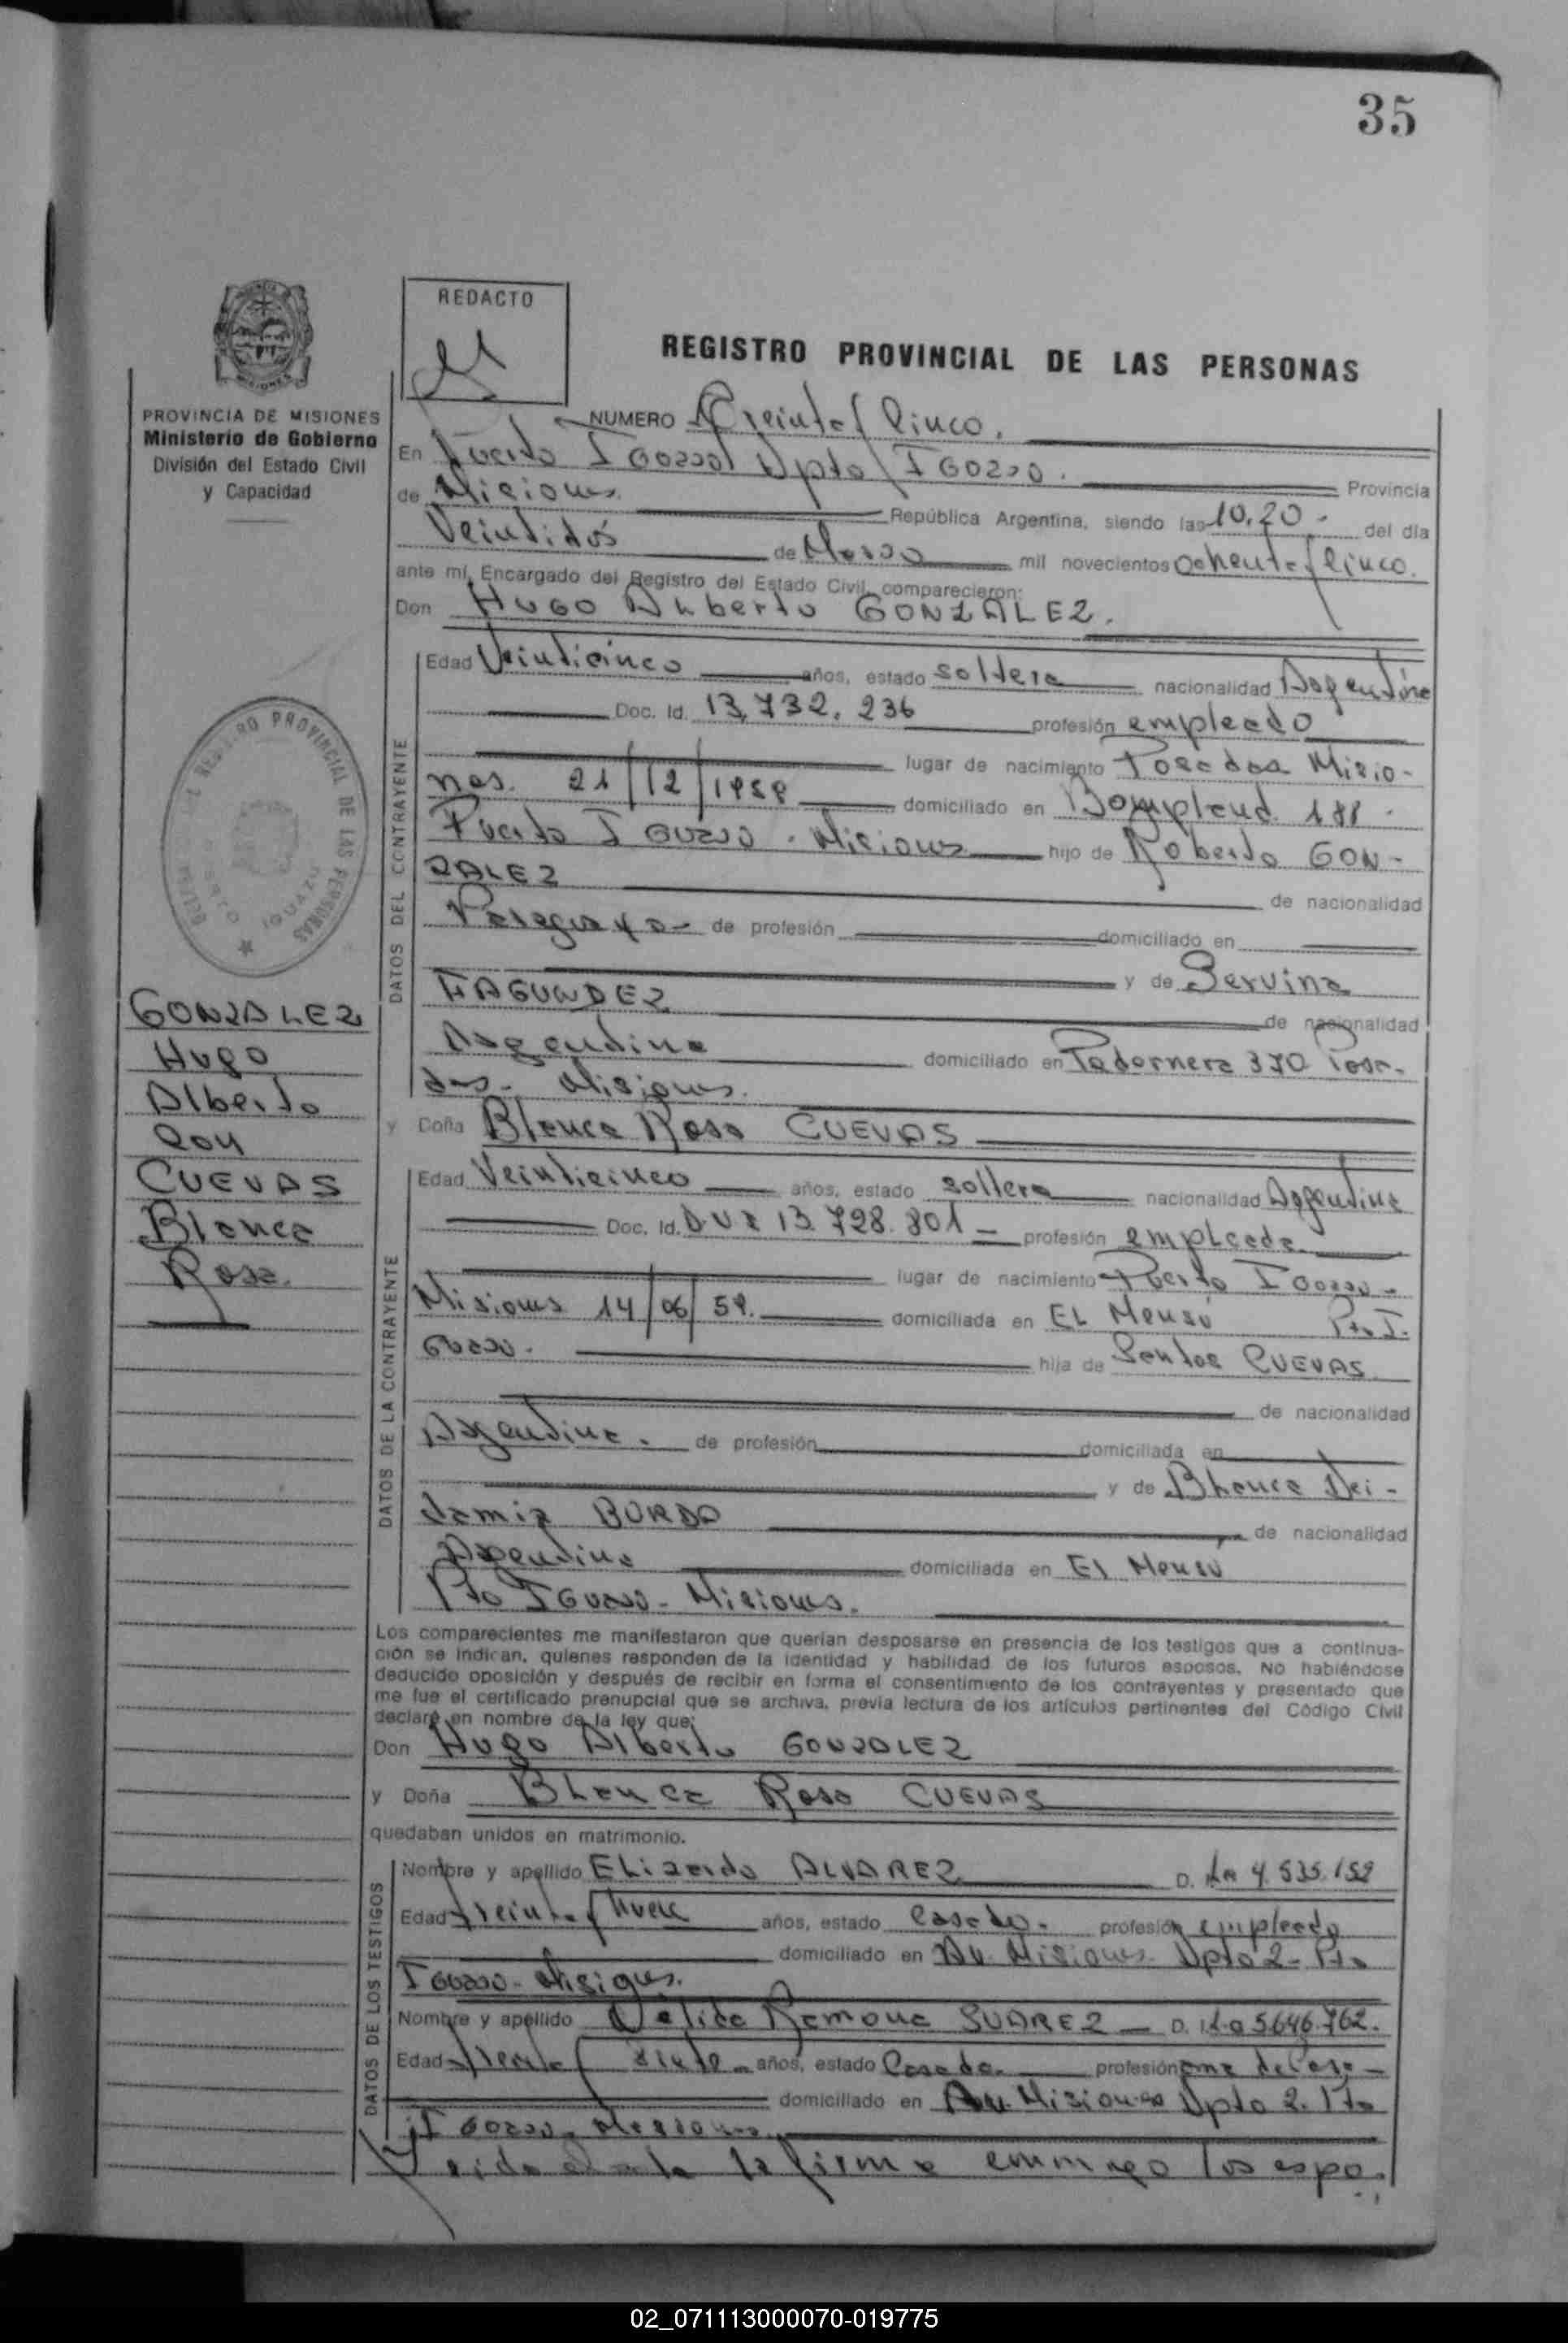 35
REDACTO
REGISTRO PROVINCIAL DE LAS PERSONAS
PROVINCIA DE MISIONES
Ministerio de Gobierno
División del Estado Civil
y Capacidad
NUMERO Treinta y Cinco.
En Puerto IGUAZU Dpto IGUAZU. Provincia
de Misiones República Argentina, siendo las 10,20 - del día
Veintidós de Marzo mil novecientos Ochenta y Cinco.
ante mí, Encargado del Registro del Estado Civil, comparecieron:
Don HUGO Alberto GONZALEZ.
DATOS DEL CONTRAYENTE
Edad Veinticinco años, estado soltero nacionalidad Argentino
Doc. Id. 13,732,236 profesión empleado
lugar de nacimiento Posadas Misio-
nes. 21/12/1959 domiciliado en Bompland 188 -
Puerto IGUAZU - Misiones hijo de Roberto GON-
ZALEZ de nacionalidad
Paraguayo - de profesión domiciliado en
y de Servina
FAGUNDEZ de nacionalidad
Argentina domiciliado en Pedernera 370 Posa-
das - Misiones.
y Doña Blanca Rosa CUEVAS
GONZALEZ
Hugo
Alberto
con
CUEVAS
Blanca
Rosa.
REGISTRO PROVINCIAL DE LAS PERSONAS
PUERTO IGUAZU
DATOS DE LA CONTRAYENTE
Edad Veinticinco años, estado soltera nacionalidad Argentina
Doc. Id. DNI 13.728.801 - profesión empleada
lugar de nacimiento Puerto IGUAZU -
Misiones 14/06/59. domiciliada en EL Mensú Pto. I-
GUAZU. hija de Santos CUEVAS
de nacionalidad
Argentina. de profesión domiciliada en
y de Blanca Dei-
damia BURDO de nacionalidad
Argentina domiciliada en El Mensú
Pto IGUAZU - Misiones.
Los comparecientes me manifestaron que querían desposarse en presencia de los testigos que a continua-
ción se indican, quienes responden de la identidad y habilidad de los futuros esposos. No habiéndose
deducido oposición y después de recibir en forma el consentimiento de los contrayentes y presentado que
me fue el certificado prenupcial que se archiva, previa lectura de los artículos pertinentes del Código Civil
declaré en nombre de la ley que:
Don Hugo Alberto GONZALEZ
y Doña Blanca Rosa CUEVAS
quedaban unidos en matrimonio.
DATOS DE LOS TESTIGOS
Nombre y apellido Elizardo ALVAREZ D. 4.535.152
Edad treinta y nueve años, estado Casado - profesión empleado
domiciliado en Av. Misiones Dpto 2 - Pto
IGUAZU - Misiones.
Nombre y apellido Delida Ramona SUAREZ - D. 5.646.762.
Edad treinta y siete - años, estado Casada profesión ama de Casa -
domiciliado en Av. Misiones Dpto 2. Pto
IGUAZU - Misiones
Leida el acta la firman conmigo los espo.
02_071113000070-019775